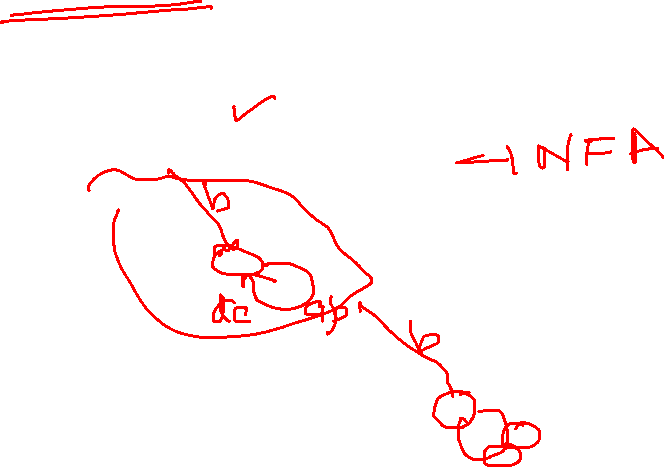 NFA
b
dc
a,b
b